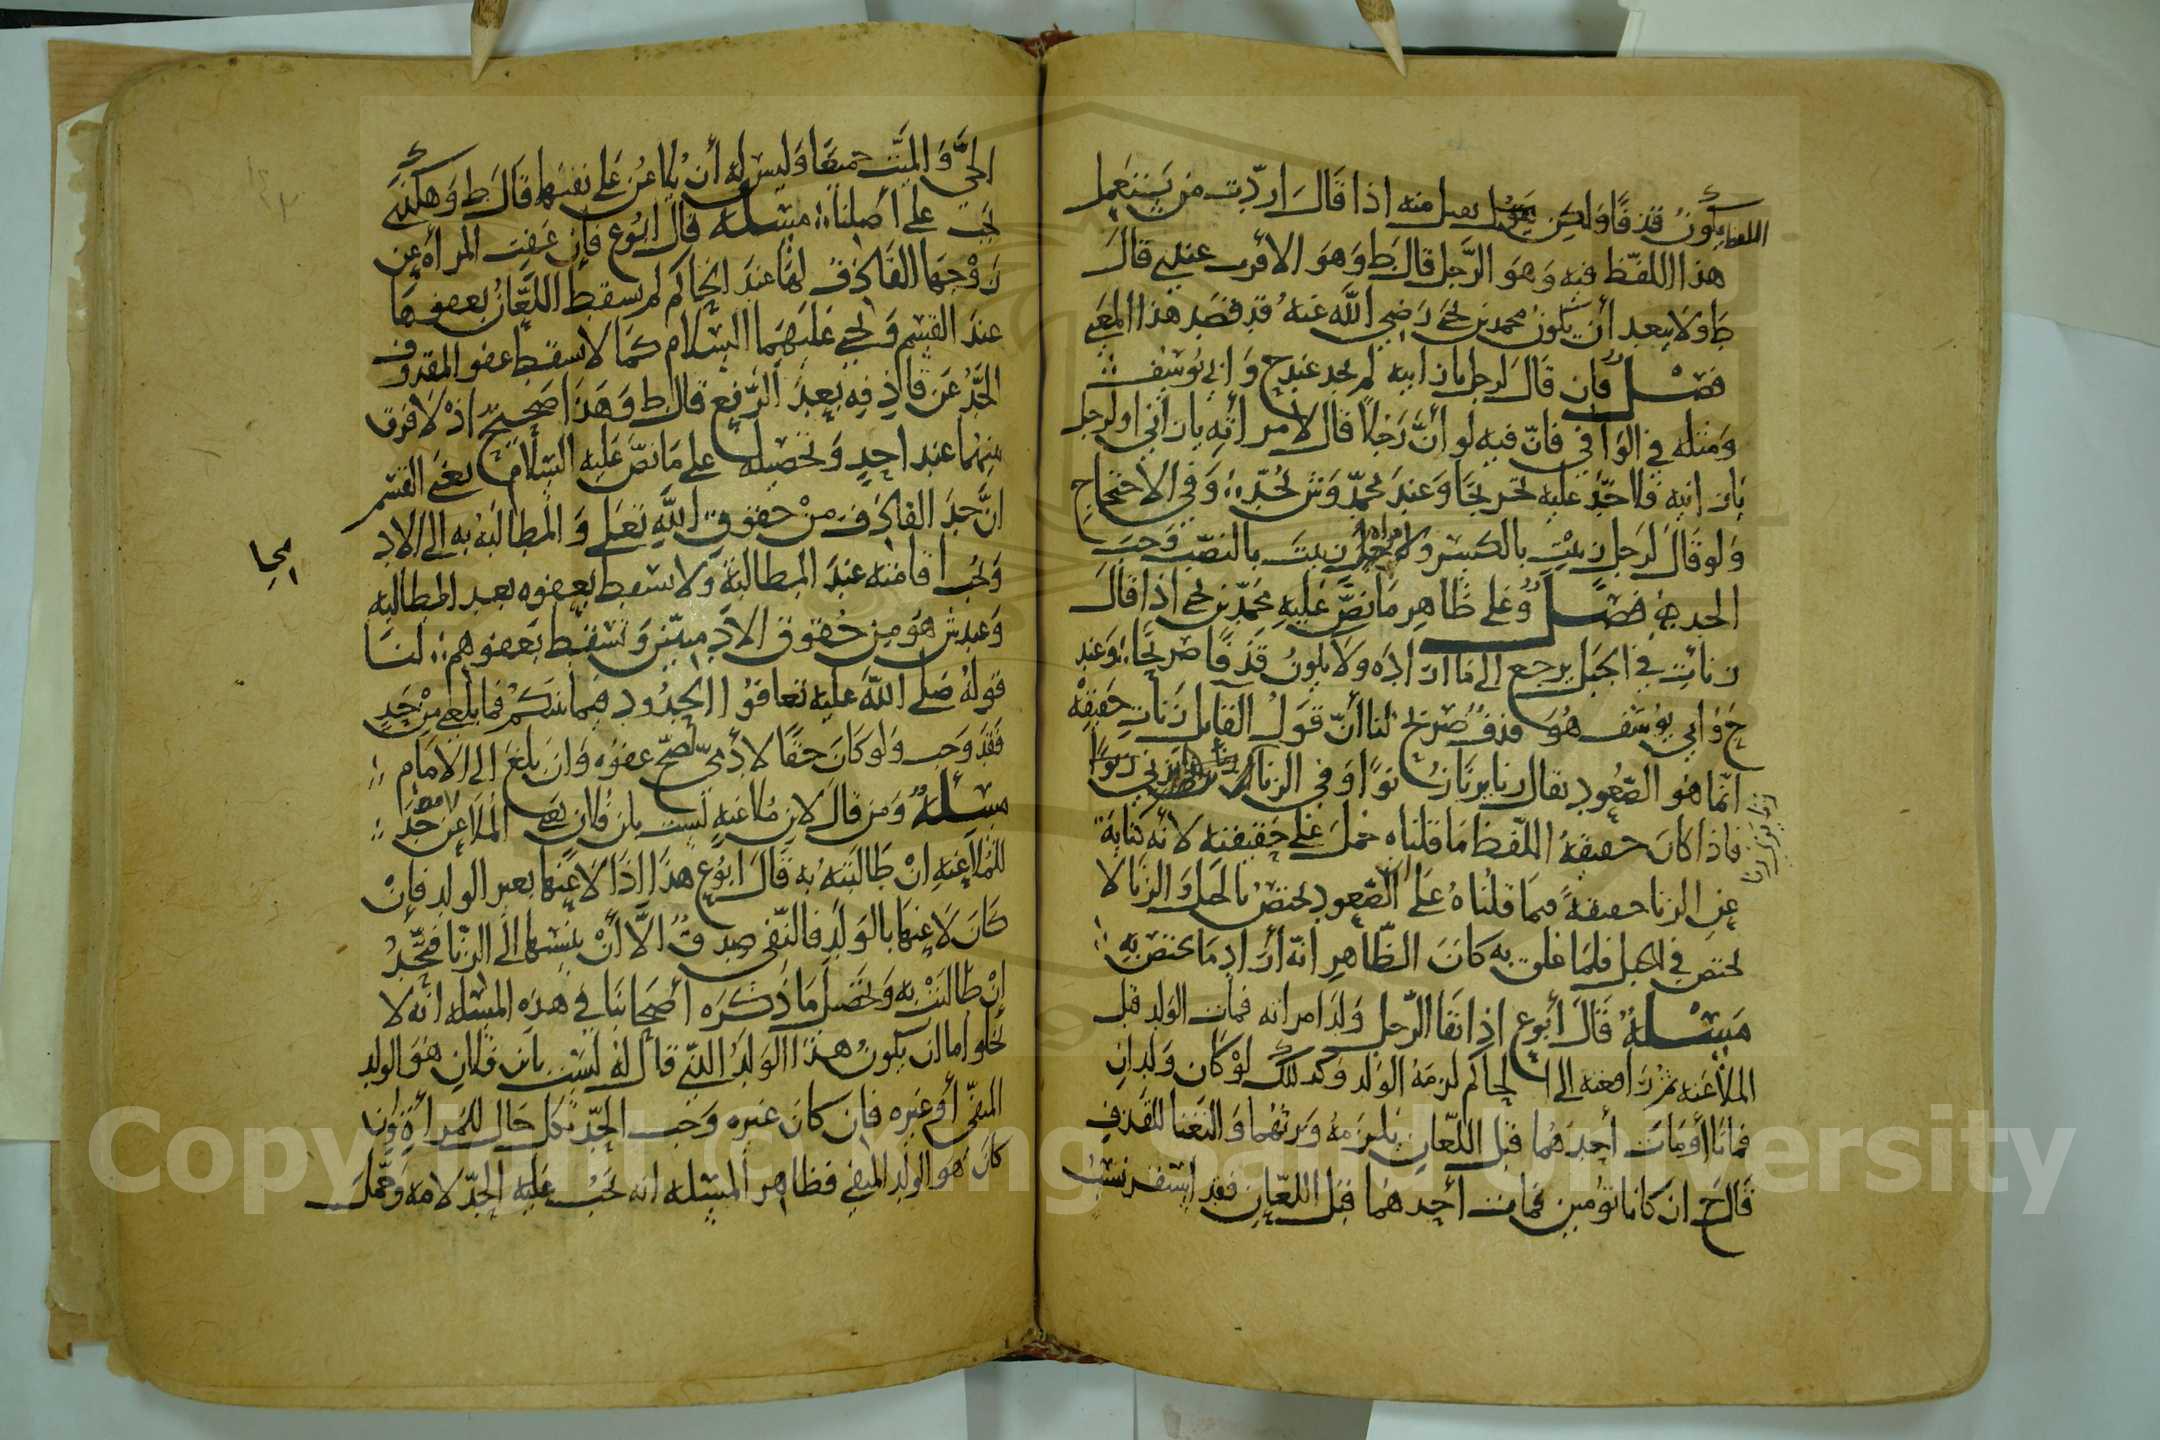 اللفظ يكون قذفا ولكن يقبل منه اذا قال اردت من يستعمل
هذا اللفظ فيه وهو الرجل قال ط وهو الأقرب عندي قال
ط ولا يبعد أن يكون محمد بن يحيى رضي الله عنه قد قصد هذا المعنى
فصل فان قال لرجل يا زانية لم يحد عند ح وابي يوسف
ومثله في الوافي فان فيه لو أن رجلا قال لامرأته يا زاني او لرجل
يا زانية فلا حد عليه تخريجا وعند محمد وش يحد وفي الاحتجاج
ولو قال لرجل زنيت بالكسر ولامرأة زنيت بالنصب وجب
الحد فصل وعلى ظاهر ما نص عليه محمد بن يحيى اذا قال
زنأت في الجبل يرجع الى ما اراده ولا يكون قذفا صريحا وعند
ح وابي يوسف هو قذف صريح لنا أن قول القايل زنأت حقيقة
انما هو الصعود يقال زنا يزنا زنوا وفي الزنا
فاذا كان حقيقة اللفظ ما قلناه حمل على حقيقته لأنه كناية
عن الزنا حقيقة فيما قلناه على أن الصعود يختص بالجبل والزنا لا
يختص في الجبل فلما علق به كان الظاهر انه أراد ما يختص به
مسئلة قال أبوع اذا نفا الرجل ولد امرأته فمات الولد قبل
الملاعنة ثم رافعته الى الحاكم لزمه الولد وكذلك لو كان ولدان
فماتا أو مات أحدهما قبل اللعان يلزمه ويرثهما والتغنا للقذف
قال ح ان كانا توءمين فمات أحدهما قبل اللعان فقد استقر نسب
زنا يزني زنا
الحي والميت جميعا وليس له أن يلاعن على نفيهما قال ط وهكذى
يجب على أصلنا مسئلة قال ابوع فإن عفت المرأة عن
زوجها القاذف لها عند الحاكم لم يسقط اللعان بعفوها
عند القسم ويحيى عليهما السلام كما لا يسقط عفو المقذوف
الحد عن قاذفه بعد الرفع قال ط وهذا صحيح اذ لا فرق
بينهما عند احد وتحصيله على ما نص عليه السلام يعني القسم
ان حد القاذف من حقوق الله تعلى والمطالبة به الى الادمي
ويجب اقامته عند المطالبة ولا يسقط بعفوه بعد المطالبة
وعند ش هو من حقوق الادميين ويسقط بعفوهم لنا
قوله صلى الله عليه تعافوا الحدود فيما بينكم فما بلغني من حد
فقد وجب ولو كان حقا لأدمي لصح عفوه وان بلغ الى الامام
مسئلة ومن قال لابن ملاعنة لست بابن فلان يعني الملاعن حد
للملاعنة ان طالبته به قال ابوع هذا اذا لاعنها بغير الولد فإن
كان لاعنها بالولد فالنفي صدق الا أن ينسبها الى الزنا فيحد
إن طالبت به وتحصيل ما ذكره أصحابنا في هذه المسئلة انه لا
يخلو اما ان يكون هذا الولد الذي قال له لست بابن فلان هو الولد
المنفي أو غيره فان كان غيره وجب الحد بكل حال للمرأة وان
كان هو الولد المنفي فظاهر المسئلة انه يجب عليه الحد لامه وحمل